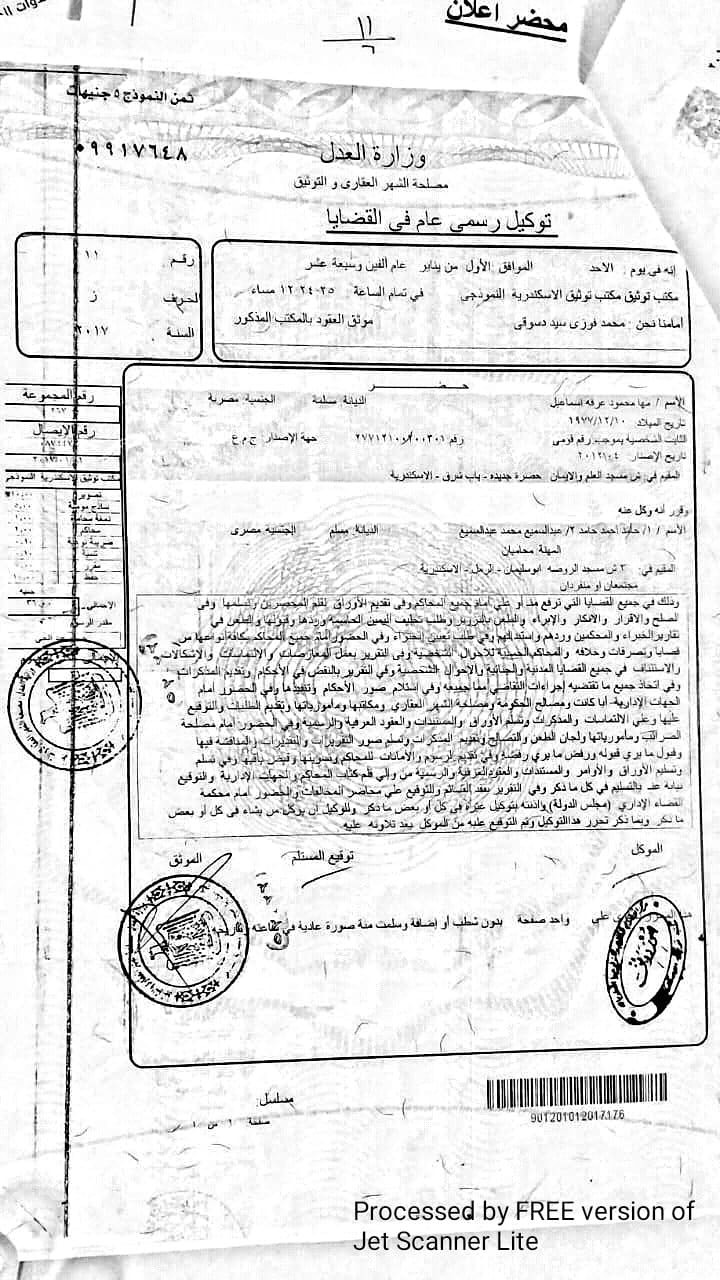 محضر اعلان
١١
٦
ثمن النموذج ٥ جنيهات
٠٩٩١٧٦٤٨
وزارة العدل
مصلحة الشهر العقارى و التوثيق
توكيل رسمى عام فى القضايا
رقم ١١
الحرف ز
السنة ٢٠١٧
إنه فى يوم : الاحد الموافق الأول من يناير عام ألفين وسبعة عشر
مكتب توثيق مكتب توثيق الاسكندرية النموذجى فى تمام الساعة ١٢:٢٤:٢٥ مساء
أمامنا نحن : محمد فوزى سيد دسوقى موثق العقود بالمكتب المذكور
حضر
الأسم / مها محمود عرفه اسماعيل الديانة مسلمة الجنسية مصرية
تاريخ الميلاد ١٩٧٧/١٢/١٠
الثابت الشخصية بموجب رقم قومى رقم جهة الإصدار ج م ع
تاريخ الإصدار ٢٠١٢٠٤
المقيم في: ش مسجد العلم والايمان حضرة جديده - باب شرق - الاسكندرية
وقرر أنه وكل عنه
الأسم / ١/ احمد حامد ٢/ عبدالسميع محمد عبدالسميع الديانة مسلم الجنسية مصرى
المهنة محاميان
المقيم في: ٣ ش مسجد الروضه ابوسليمان - الرمل - الاسكندرية
مجتمعان او منفردان
وذلك في جميع القضايا التي ترفع مني أو علي أمام جميع المحاكم وفي تقديم الأوراق لقلم المحضرين وتسلمها وفي
الصلح والاقرار والانكار والإبراء والطعن بالتزوير وطلب تحليف اليمين الحاسمة وردها وقبولها والطعن في
تقارير الخبراء والمحكمين وردهم واستبدالهم وفي طلب تعيين الخبراء وفي الحضور أمام جميع المحاكم بكافة أنواعها من
قضايا وتصرفات وخلافه والمحاكم الحسبية للأحوال الشخصية وفى التقرير بعمل المعارضات والالتماسات والاشكالات
والاستئناف في جميع القضايا المدنية والجنائية والاحوال الشخصية وفي التقرير بالنقض في الأحكام وتقديم المذكرات
وفي اتخاذ جميع ما تقتضيه إجراءات التقاضي مما جميعه وفي إستلام صور الأحكام وتنفيذها وفي الحضور أمام
الجهات الإدارية أيا كانت ومصالح الحكومة ومصلحة الشهر العقاري ومكاتبها ومأمورياتها وتقديم الطلبات والتوقيع
عليها وعلي الالتماسات والمذكرات وتسلم الأوراق والمستندات والعقود العرفية والرسمية وفي الحضور أمام مصلحة
الضرائب ومأمورياتها ولجان الطعن والتصالح وتقديم المذكرات وتسلم صور التقريرات والتقديرات والمناقشة فيها
وقبول ما يري قبوله ورفض ما يري رفضه وفي تقديم الرسوم والأمانات للمحاكم وتسويتها وقبض باقيها وفي تسلم
وتسليم الأوراق والأوامر والمستندات والعقود العرفية والرسمية من وإلي قلم كتاب المحاكم والجهات الإدارية والتوقيع
نيابة عنه بالتسليم في كل ما ذكر وفي التقرير بفقد القسائم والتوقيع علي محاضر المخالفات والحضور أمام محكمة
القضاء الإداري (مجلس الدولة) وأذنته بتوكيل غيره فى كل أو بعض ما ذكر وللوكيل ان يوكل من يشاء فى كل أو بعض
ما ذكر وبما ذكر تحرر هذا التوكيل وتم التوقيع عليه من الموكل بعد تلاوته عليه
الموكل
توقيع المستلم
الموثق
علي واحد صفحة بدون شطب أو إضافة وسلمت منة صورة عادية في
رقم المجموعة
٢٦٧
رقم الايصال
مكتب توثيق الاسكندرية النموذجى
تصوير
محاكم
حفظ
جنيه
الاجمالى
مسلسل:
صفحة ١ من ١
901201012017176
Processed by FREE version of
Jet Scanner Lite